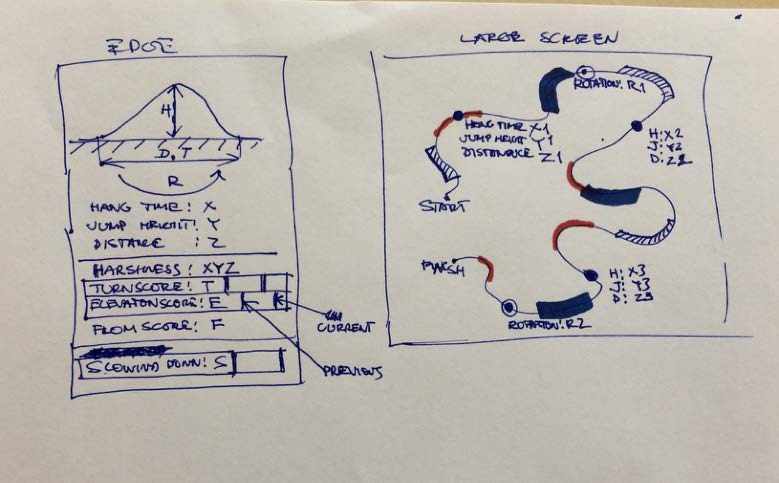 EDGE
H
D, T
R
HANG TIME: X
JUMP HEIGHT: Y
DISTANCE : Z
HARSHNESS: XYZ
TURNSCORE: T
ELEVATONSCORE: E
FLOM SCORE: F
SLOWIND DOWN: S
CURRENT
PREVIOUS
LARGE SCREEN
ROTATION: R1
HANG TIME X1
JUMP HEIGHT Y1
DISTANCE Z1
START
H: X2
J: Y2
D: Z2
FINISH
H: X3
J: Y3
D: Z3
ROTATION: R2